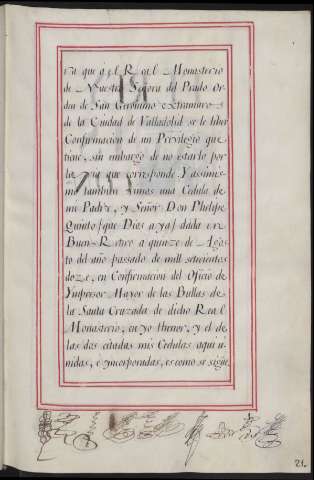 ra que a el Real Monasterio
de Nuestra Señora del Prado Or-
den de San Geronimo extramuros
de la Ciudad de Valladolid se le libre
Confirmacion de un Privilegio que
tiene, sin embargo de no estarlo por
la que corresponde Y assimis-
mo tambien firmas una Cedula de
mi Padre, y Señor Don Phelipe
Quinto (que Dios aya) dada en
Buen Retiro a quinze de Agos-
to del año passado de mill setecientos
doze, en Confirmacion del Oficio de
Ympresor Mayor de las Bullas de
la Santa Cruzada de dicho Real
Monasterio, cuyo thenor, y el de
las dos citadas mis Cedulas aqui u-
nidas, è yncorporadas, es como se sigue
21